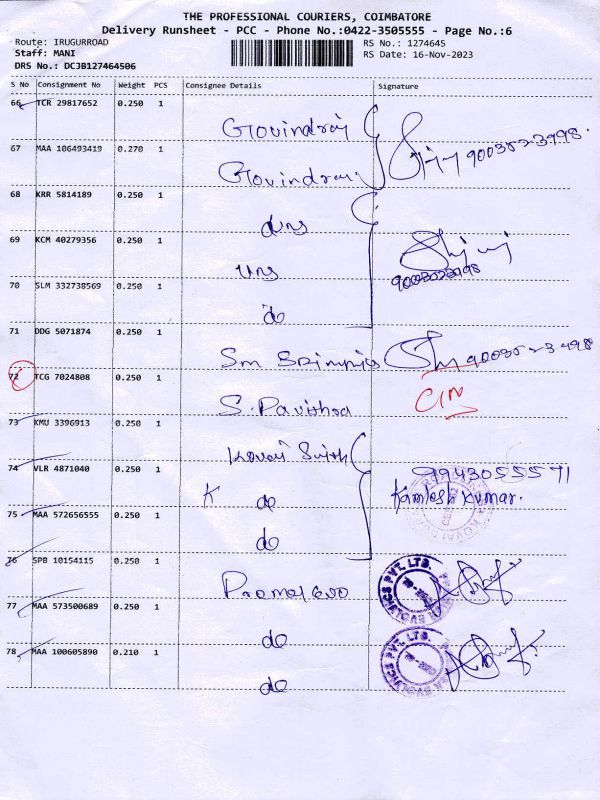 THE PROFESSIONAL COURIERS, COIMBATORE
Delivery Runsheet - PCC - Phone No.:0422-3505555 - Page No.:6
Route: IRUGURROAD
RS No.: 1274645
Staff: MANI
RS Date: 16-Nov-2023
DRS No.: DCJB127464506
S No Consignment No Weight PCS Consignee Details Signature
66 TCR 29817652 0.250 1
Govindraj
67 MAA 106493419 0.270 1
Govindraj
68 KRR 5814189 0.250 1
69 KCM 40279356 0.250 1
70 SLM 332738569 0.250 1
do
71 DDG 5071874 0.250 1
72 TCG 7024808 0.250 1
S. Pavithra
73 KMU 3396913 0.250 1
74 VLR 4871040 0.250 1
9943055571
K do Kamlesh Kumar.
75 MAA 572656555 0.250 1
do
76 SPB 10154115 0.250 1
PVT. LTD.
77 MAA 573500689 0.250 1
do
78 MAA 100605890 0.210 1
PVT. LTD.
do